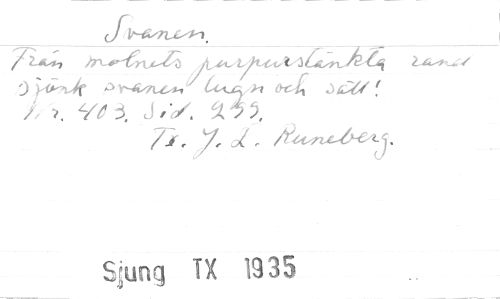 Svanen.
Från molnets purpurstänkta rand
sjönk svanen lugn och säll!
Nr. 403. Sid. 299.
Tx. J. L. Runeberg.
Sjung TX 1935